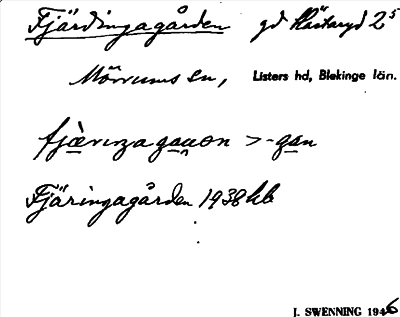 Fjärdingagården gd Hästaryd 2⁵
Mörrums sn, Listers hd, Blekinge län.
Fjäringagården 1938 kb
J. SWENNING 1946